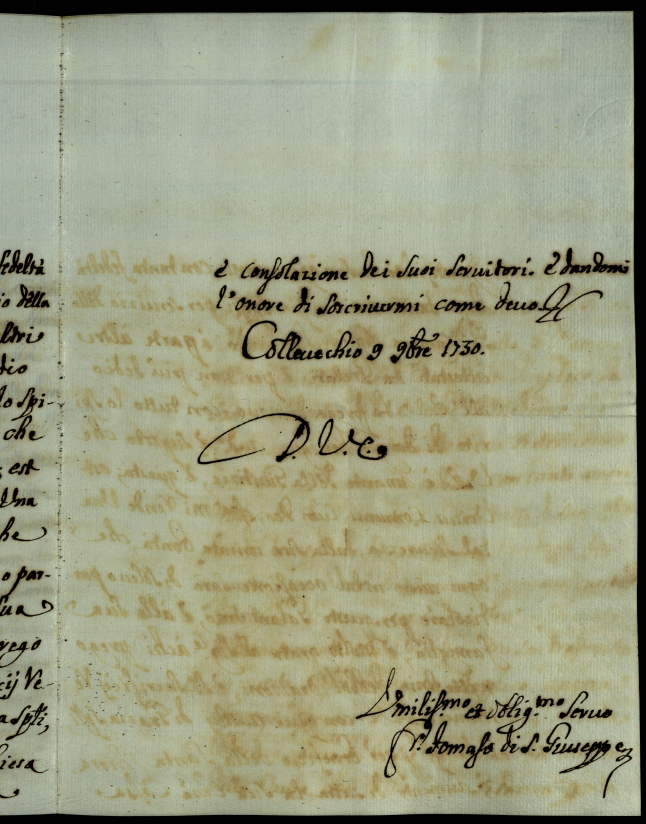 fedeltà
io della
altri
dio
lo spi-
che
est
Una
he
o par-
sua
rego
cij Ve-
a spti,
hiesa
è consolazione dei suoi servitori. E dandomi
l'onore di soscrivermi come devo
Collevechio 9 9bre 1730.
D. V. C.
Umiliss.mo et oblig.mo Servo
P. Tomaso di S. Giuseppe